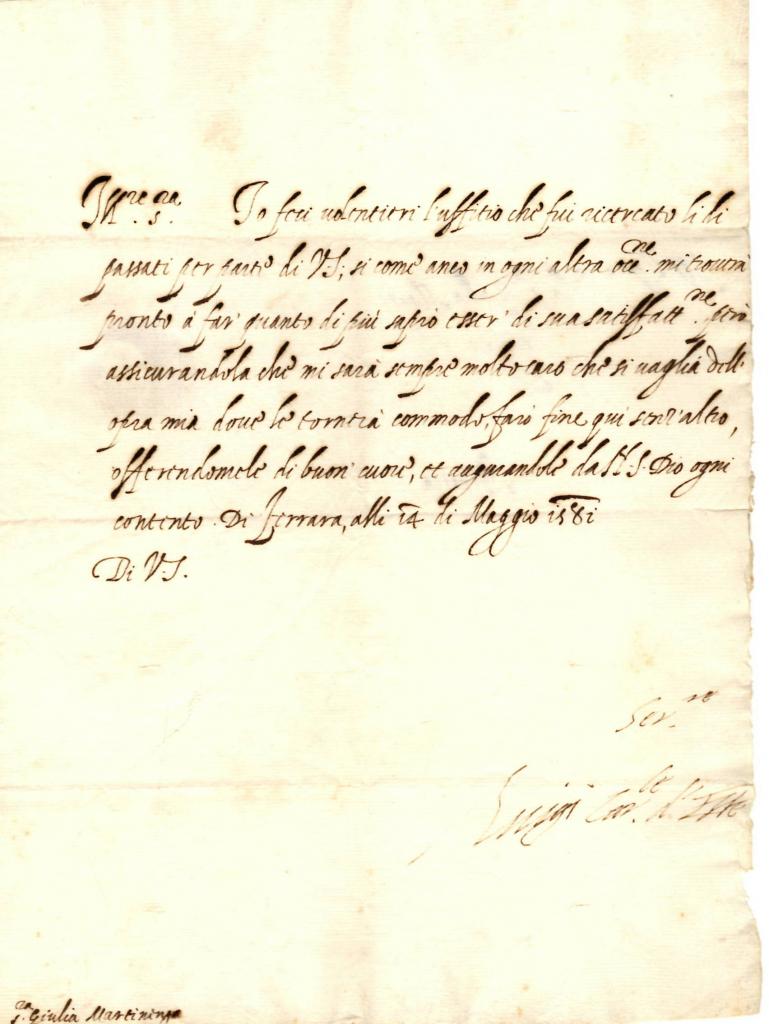 Ill.re S.ra Io feci volentieri l'uffitio che fui ricercato li di
passati per parte di V.S., si come anco in ogni altra occ.ne mi trovarà
pronto à far' quanto di più saprò esser' di sua satisfatt.ne però
assicurandola che mi sarà sempre molto caro che si vaglia dell'
opra mia dove le tornerà commodo, farò fine qui senz'altro,
offerendomele di buon' cuore, et augurandole da N.S. Dio ogni
contento. Di Ferrara, alli 14 di Maggio 1581
Di V.S.
Ser.re
Luigi Car.le d'Este
S.ra Giulia Martinenga